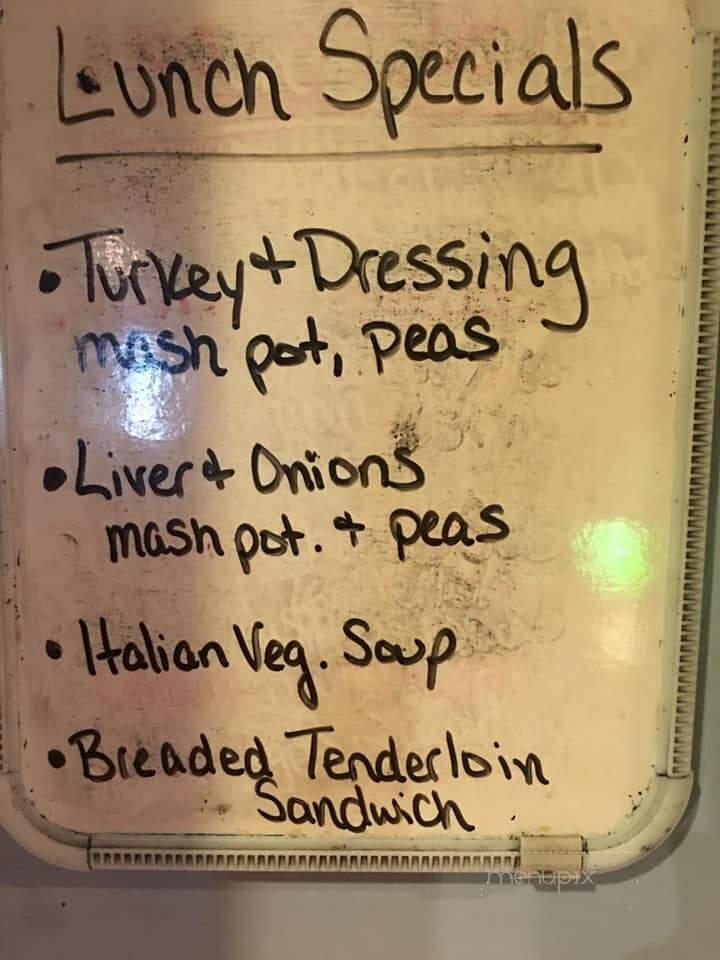 Lunch Specials
• Turkey + Dressing
mash pot, peas
• Liver + Onions
mash pot. + peas
• Italian Veg. Soup
• Breaded Tenderloin
Sandwich
menupix